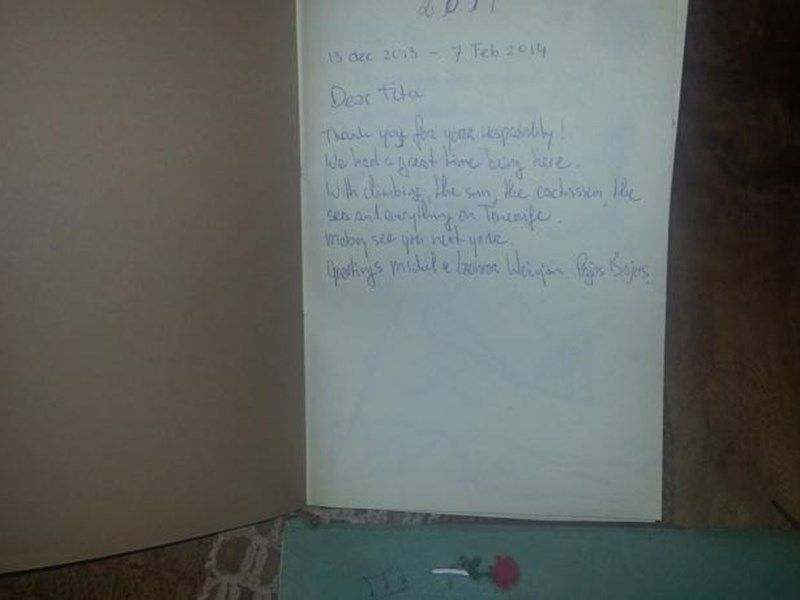 13 dec 2013 - 7 Feb 2014
Dear Tita
Thank you for your hospitality!
We had a great time being here.
With climbing, the sun, the cactussen, the
sea and everything on Tenerife.
Maby see you next year.
Greetings Michel e